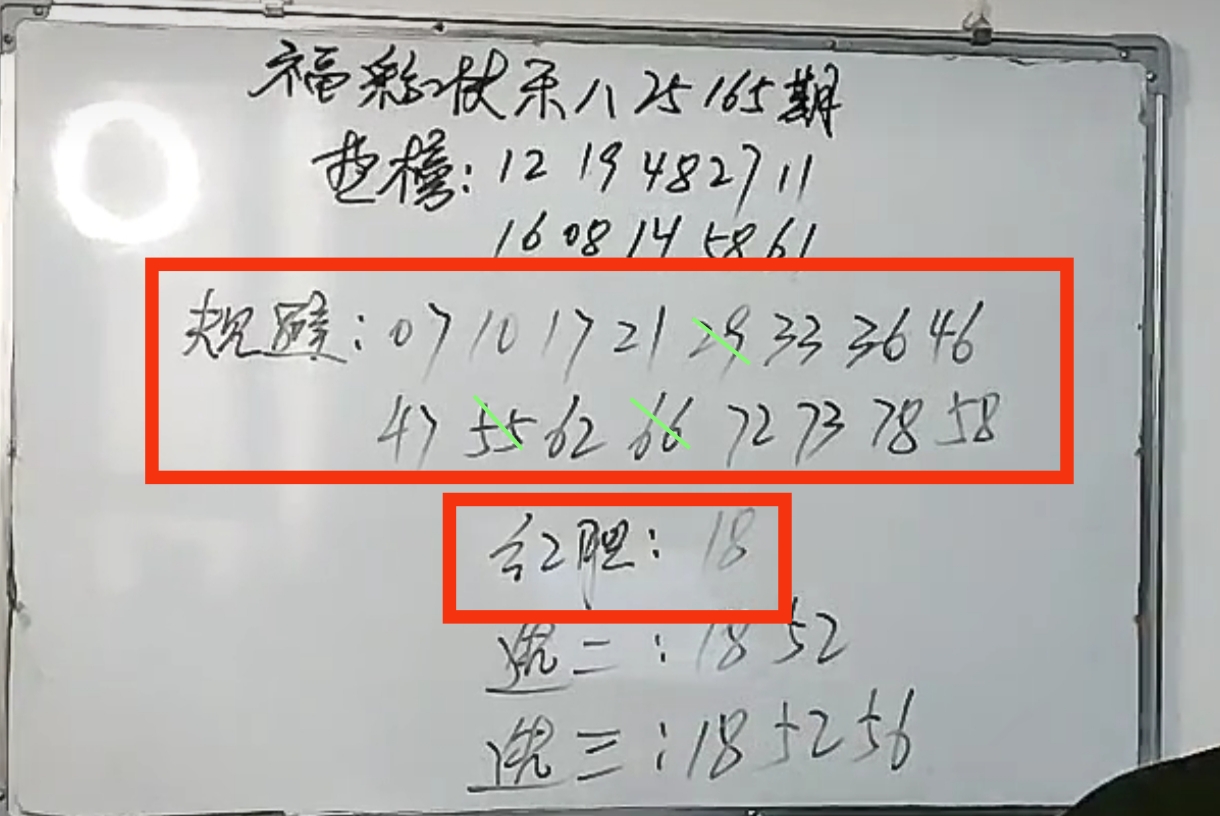 福彩快乐八25165期
垫榜: 12 19 48 27 11
16 08 14 58 61
规避: 07 10 17 21 29 33 36 46
47 55 62 66 72 73 78 58
红胆: 18
选二: 18 52
选三: 18 52 56